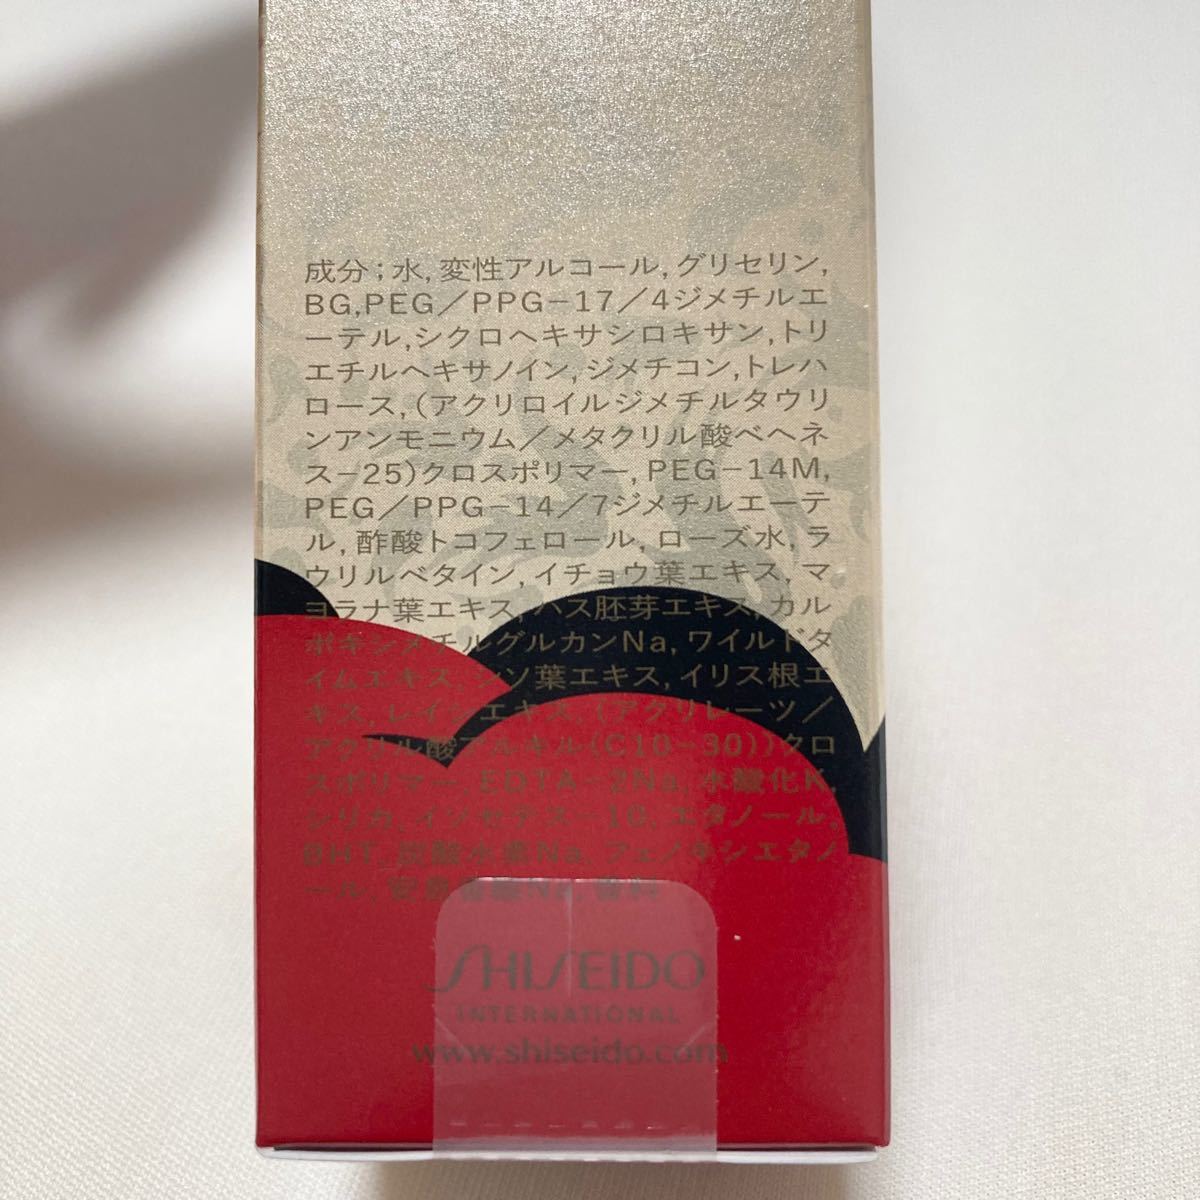 成分;水,変性アルコール,グリセリン,
BG,PEG/PPG-17/4ジメチルエ
ーテル,シクロヘキサシロキサン,トリ
エチルヘキサノイン,ジメチコン,トレハ
ロース,(アクリロイルジメチルタウリ
ンアンモニウム/メタクリル酸ベヘネ
ス-25)クロスポリマー,PEG-14M,
PEG/PPG-14/7ジメチルエーテ
ル,酢酸トコフェロール,ローズ水,ラ
ウリルベタイン,イチョウ葉エキス,マ
ヨラナ葉エキス,ハス胚芽エキス,カル
ボキシメチルグルカンNa,ワイルドタ
イムエキス,シソ葉エキス,イリス根エ
キス,レイシエキス,(アクリレーツ/
アクリル酸アルキル(C10-30))クロ
スポリマー,EDTA-2Na,水酸化K,
シリカ,イソセテス-10,エタノール,
BHT,炭酸水素Na,フェノキシエタノ
ール,安息香酸Na,香料
SHISEIDO
INTERNATIONAL
www.shiseido.com